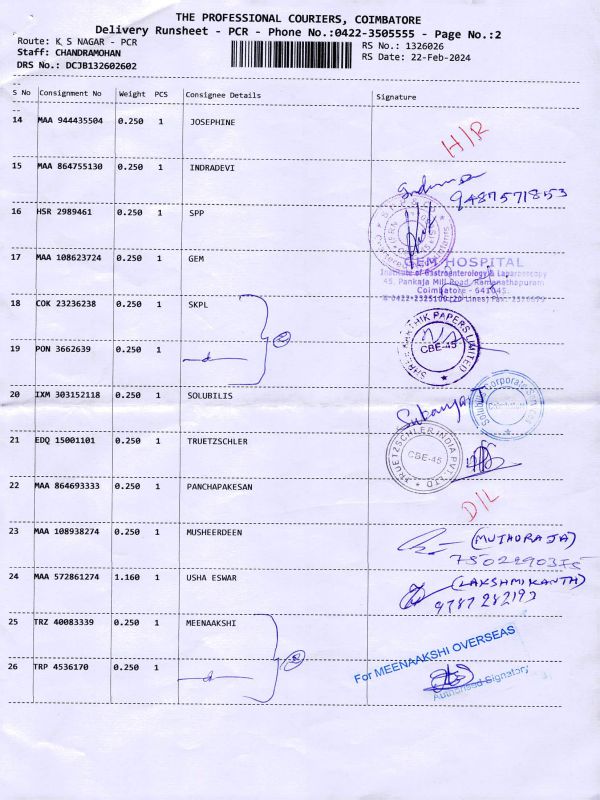 THE PROFESSIONAL COURIERS, COIMBATORE
Delivery Runsheet - PCR - Phone No.:0422-3505555 - Page No.:2
Route: K S NAGAR - PCR
RS No.: 1326026
Staff: CHANDRAMOHAN
RS Date: 22-Feb-2024
DRS No.: DCJB132602602
S No Consignment No Weight PCS Consignee Details Signature
14 MAA 944435504 0.250 1 JOSEPHINE H/R
15 MAA 864755130 0.250 1 INDRADEVI
9487571853
16 HSR 2989461 0.250 1 SPP
17 MAA 108623724 0.250 1 GEM
GEM HOSPITAL
Institute of Gastroenterology & Laparoscopy
45, Pankaja Mill Road, Ramanathapuram
Coimbatore - 641045.
0422-2325100 (20 Lines) Fax:
18 COK 23236238 0.250 1 SKPL
2
19 PON 3662639 0.250 1
KARTHIK PAPERS LIMITED
CBE-45
20 IXM 303152118 0.250 1 SOLUBILIS
Solubilis Corporate Services
21 EDQ 15001101 0.250 1 TRUETZSCHLER
TRUETZSCHLER INDIA PVT. LTD
CBE-45
22 MAA 864693333 0.250 1 PANCHAPAKESAN D/L
23 MAA 108938274 0.250 1 MUSHEERDEEN (MUTHURAJA)
24 MAA 572861274 1.160 1 USHA ESWAR (LAKSHMIKANTH)
9787282193
25 TRZ 40083339 0.250 1 MEENAAKSHI
2
For MEENAAKSHI OVERSEAS
26 TRP 4536170 0.250 1
Authorised Signatory